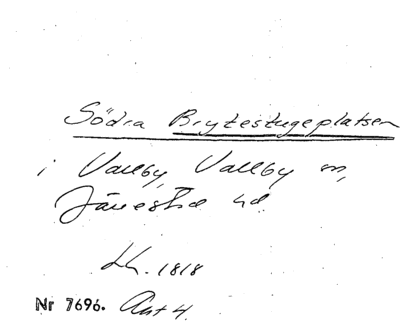 Södra Brytestugeplatsen
i Valby, Vallby sn,
Järrestad hd
Lk. 1818
Nr 7696. Akt 4.